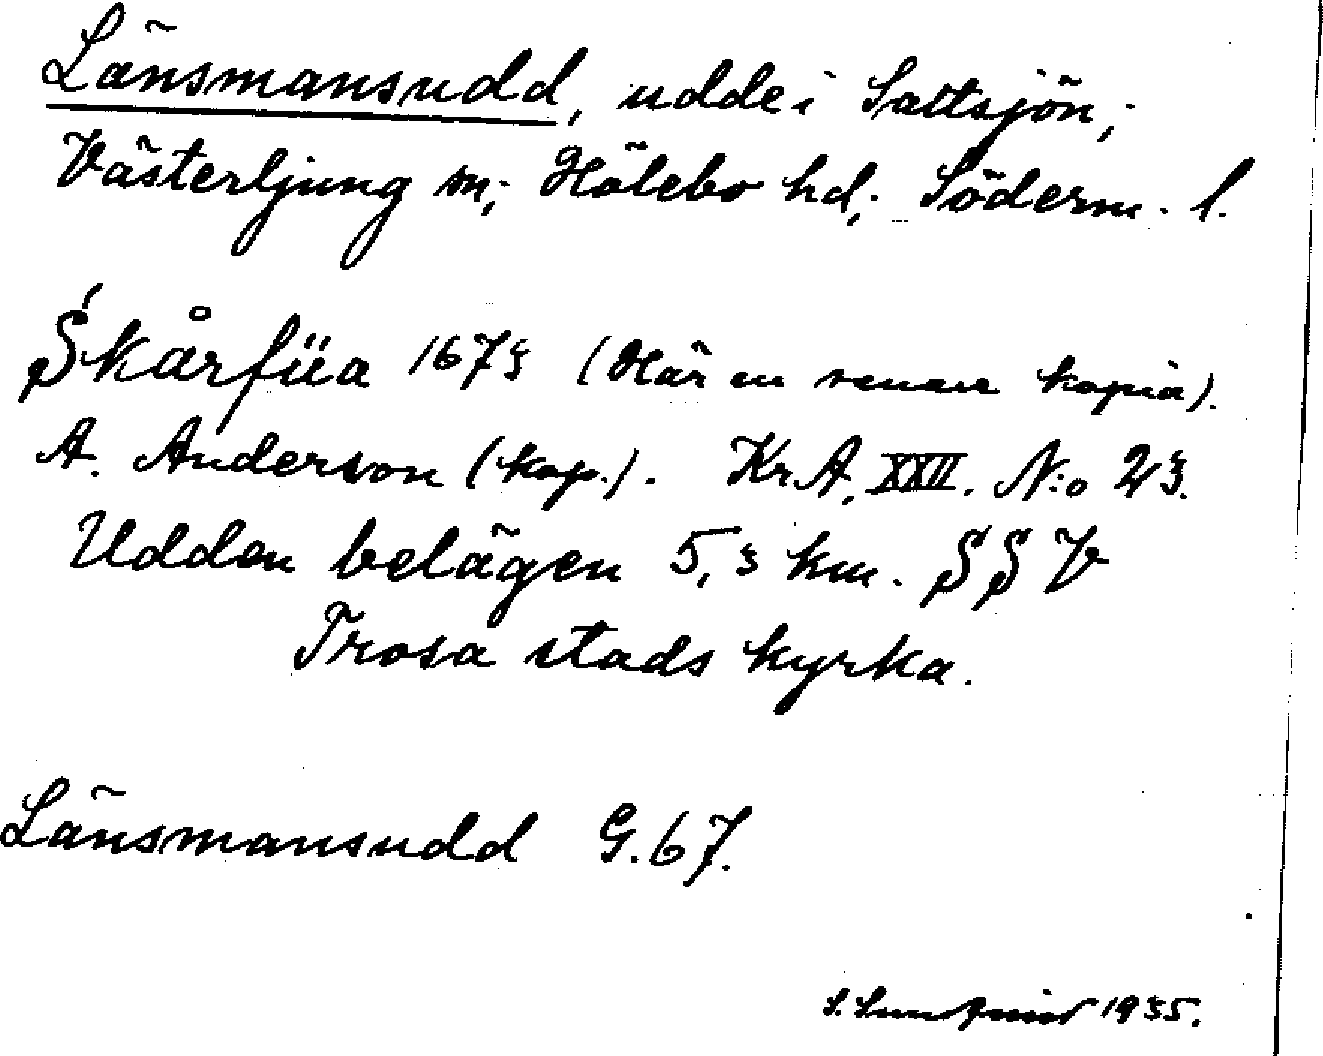 Länsmansudd, udde i Saltsjön,
Västerljung sn; Hölebo hd; Söderm. l.
Skårfüa 1673 (Här en senare kopia).
A. Anderson (kop.). KrA, XXII. N:o 23.
Udden belägen 5,3 km. SSV
Trosa stads kyrka.
Länsmansudd G.67.
S. 1935.